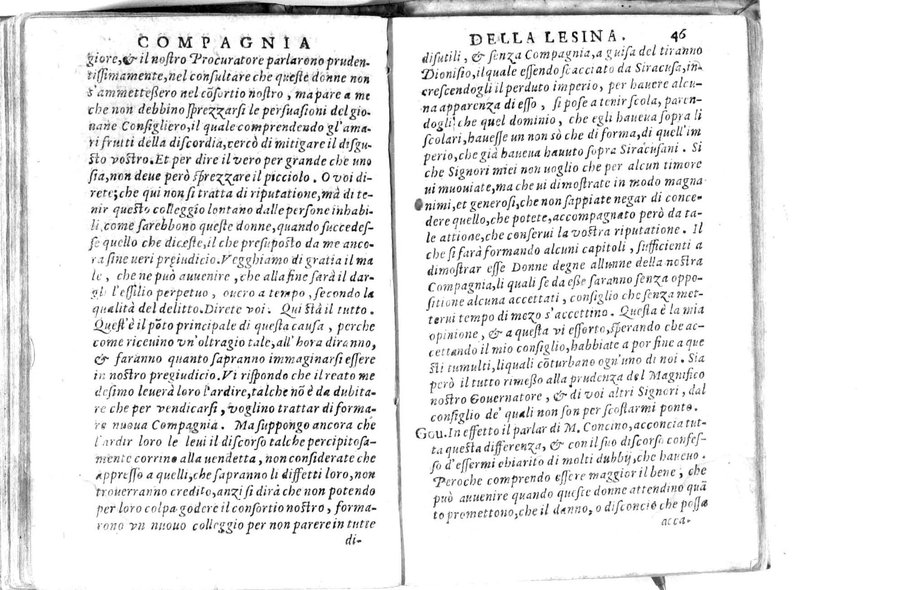 COMPAGNIA
giore, & il nostro Procuratore parlarono pruden-
tissimamente, nel consultare che queste donne non
s'ammettessero nel cōsortio nostro, ma pare a me
che non debbino sprezzarsi le persuasioni del gio-
nane Consigliero, il quale comprendendo gl'ama-
ri frutti della discordia, cercò di mitigare il disgu-
sto vostro. Et per dire il vero per grande che uno
sia, non deue però sprezzare il picciolo. O voi di-
rete; che qui non si tratta di riputatione, mà di te-
nir questo colleggio lontano dalle persone inhabi-
li, come sarebbono queste donne, quando succedes-
se quello che diceste, il che presuposto da me anco-
ra sine ueri pregiudicio. Vegghiamo di gratia il ma
le, che ne può auuenire, che alla fine sarà il dar-
gli l'essilio perpetuo, ouero a tempo, secondo la
qualità del delitto. Direte voi. Qui stà il tutto.
Quest'è il pōto principale di questa causa, perche
come riceuino vn'oltragio tale, all'hora diranno,
& faranno quanto sapranno immaginarsi essere
in nostro pregiudicio. Vi rispondo che il reato me
desimo leuerà loro l'ardire, talche nō è da dubita-
re che per vendicarsi, voglino trattar di forma-
re nuoua Compagnia. Ma suppongo ancora che
l'ardir loro le leui il discorso talche percipitosa-
mente corrino alla uendetta, non considerate che
appresso a quelli, che sapranno li diffetti loro, non
trouerranno credito, anzi si dirà che non potendo
per loro colpa godere il consortio nostro, forma-
rono vn nuouo colleggio per non parere in tutte
di-
DELLA LESINA. 46
disutili, & senza Compagnia, a guisa del tiranno
Dionisio, il quale essendo scacciato da Siracusa, in-
crescendogli il perduto imperio, per hauere alcu-
na apparenza di esso, si pose a tenir scola, paren-
dogli che quel dominio, che egli haueua sopra li
scolari, hauesse un non sò che di forma, di quell'im
perio, che già haueua hauuto sopra Siracusani. Si
che Signori miei non uoglio che per alcun timore
ui muouiate, ma che ui dimostrate in modo magna
nimi, et generosi, che non sappiate negar di conce-
dere quello, che potete, accompagnato però da ta-
le attione, che conserui la vostra riputatione. Il
che si farà formando alcuni capitoli, sufficienti a
dimostrar esse Donne degne allunne della nostra
Compagnia, li quali se da esse saranno senza oppo-
sitione alcuna accettati, consiglio che senza met-
terui tempo di mezo s'accettino. Questa è la mia
opinione, & a questa vi essorto, sperando che ac-
cettando il mio consiglio, habbiate a por fine a que
sti tumulti, liquali cōturbano ogn'uno di noi. Sia
però il tutto rimesso alla prudenza del Magnifico
nostro Gouernatore, & di voi altri Signori, dal
consiglio de' quali non son per scostarmi ponto.
Gou. In effetto il parlar di M. Concino, acconcia tut-
ta questa differenza, & con il suo discorso confes-
so d'essermi chiarito di molti dubbij, che haueuo.
Peroche comprendo essere maggior il bene, che
può auuenire quando queste donne attendino quā
to promettono, che il danno, o disconcio che possa
acca-